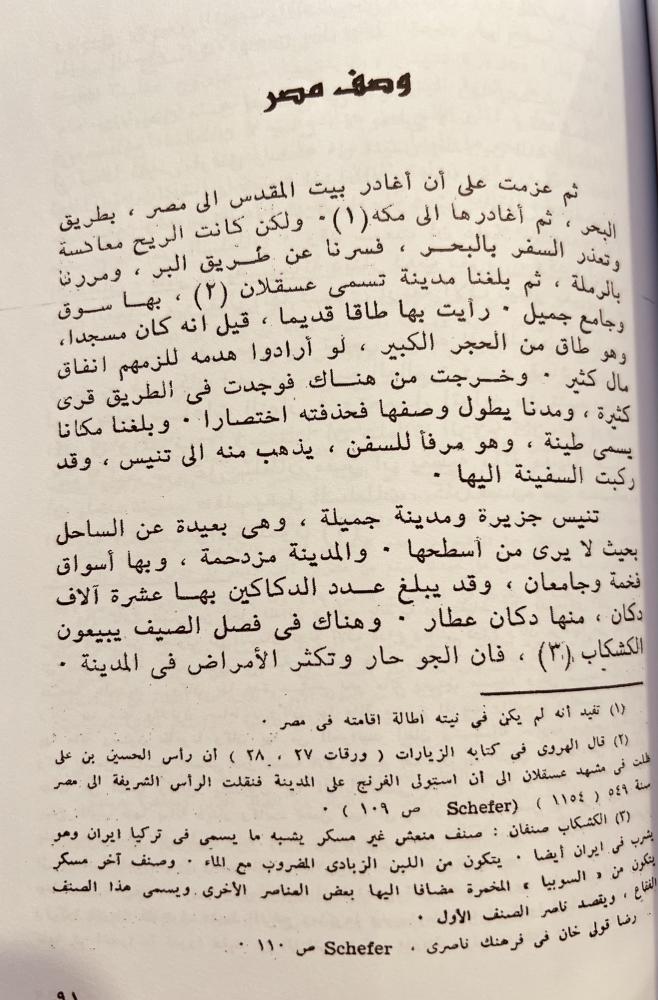 وصف مصر
ثم عزمت على أن أغادر بيت المقدس الى مصر ، بطريق
البحر ، ثم أغادرها الى مكه(١)٠ ولكن كانت الريح معاكسة
وتعذر السفر بالبحـــر ، فسرنا عن طـــريق البر ، ومررنا
بالرملة ، ثم بلغنا مدينة تسمى عسقلان (٢) ، بهـا ســوق
وجامع جميل ٠ رأيت بها طاقا قديما ، قيل انه كان مسجدا،
وهو طاق من الحجر الكبير ، لو أرادوا هدمه للزمهم انفاق
مال كثير ٠ وخـــرجت من هنـــاك فوجدت فى الطريق قرى
كثيرة ، ومدنا يطول وصفها فحذفته اختصارا ٠ وبلغنا مكانا
يسمى طينة ، وهو مرفأ للسفن ، يذهب منه الى تنيس ، وقد
ركبت السفينة اليها ٠
تنيس جزيرة ومدينة جميلة ، وهى بعيدة عن الساحل
بحيث لا يرى من أسطحها ٠ والمدينة مزدحمة ، وبها أسواق
فخمة وجامعان ، وقد يبلغ عـــدد الدكاكين بهـــا عشرة آلاف
دكان ، منها دكان عطار ٠ وهناك فى فصل الصيف يبيعون
الكشكاب (٣) ، فان الجو حار وتكثر الأمراض فى المدينة ٠
(١) تفيد أنه لم يكن في نيته اطالة اقامته فى مصر ٠
(٢) قال الهروى فى كتابه الزيارات ( ورقات ٢٧ ، ٢٨ ) أن رأس الحسين بن على
ظلت فى مشهد عسقلان الى أن استولى الفرنج على المدينة فنقلت الرأس الشريفة الى مصر
سنة ٥٤٩ ( ١١٥٤ ) (Schefer ص ١٠٩ ) ٠
(٣) الكشكاب صنفان : صنف منعش غير مسكر يشبه ما يسمى فى تركيا ايران وهو
يشرب فى ايران أيضا ٠ يتكون من اللبن الزبادى المضروب مع الماء ٠ وصنف آخر مسكر
يتكون من « السوبيا » المخمرة مضافا اليها بعض العناصر الأخرى ويسمى هذا الصنف
الفقاع ، ويقصد ناصر الصنف الأول ٠
رضا قولى خان فى فرهنك ناصرى ، Schefer ص ١١٠ ٠
٩١